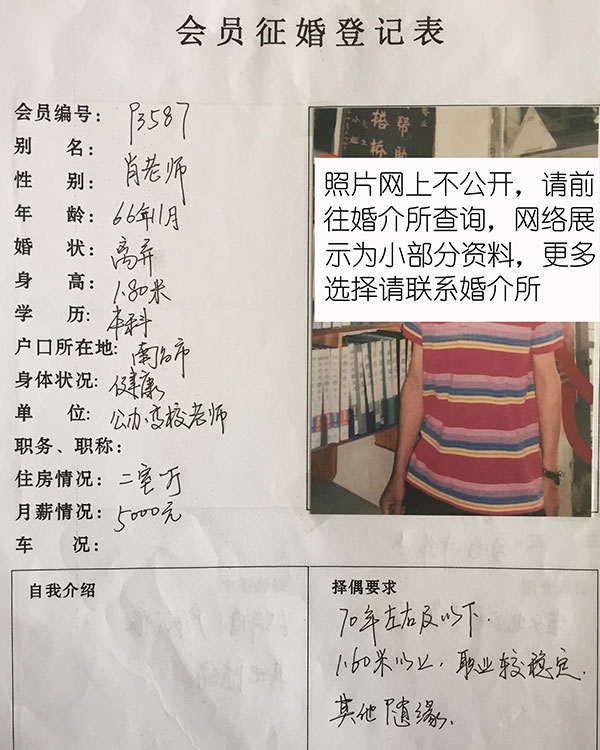 会员征婚登记表
会员编号: P3587
别 名: 肖老师
性 别:
年 龄: 66年11月
婚 状: 离异
身 高: 1.80米
学 历: 本科
户口所在地: 南昌市
身体状况: 健康
单 位: 公办高校老师
职务、职称:
住房情况: 二室一厅
月薪情况: 5000元
车 况:
帮助
搭桥
照片网上不公开，请前
往婚介所查询，网络展
示为小部分资料，更多
选择请联系婚介所
自我介绍
择偶要求
70年左右及以下.
1.60米以上，职业较稳定.
其他随缘.